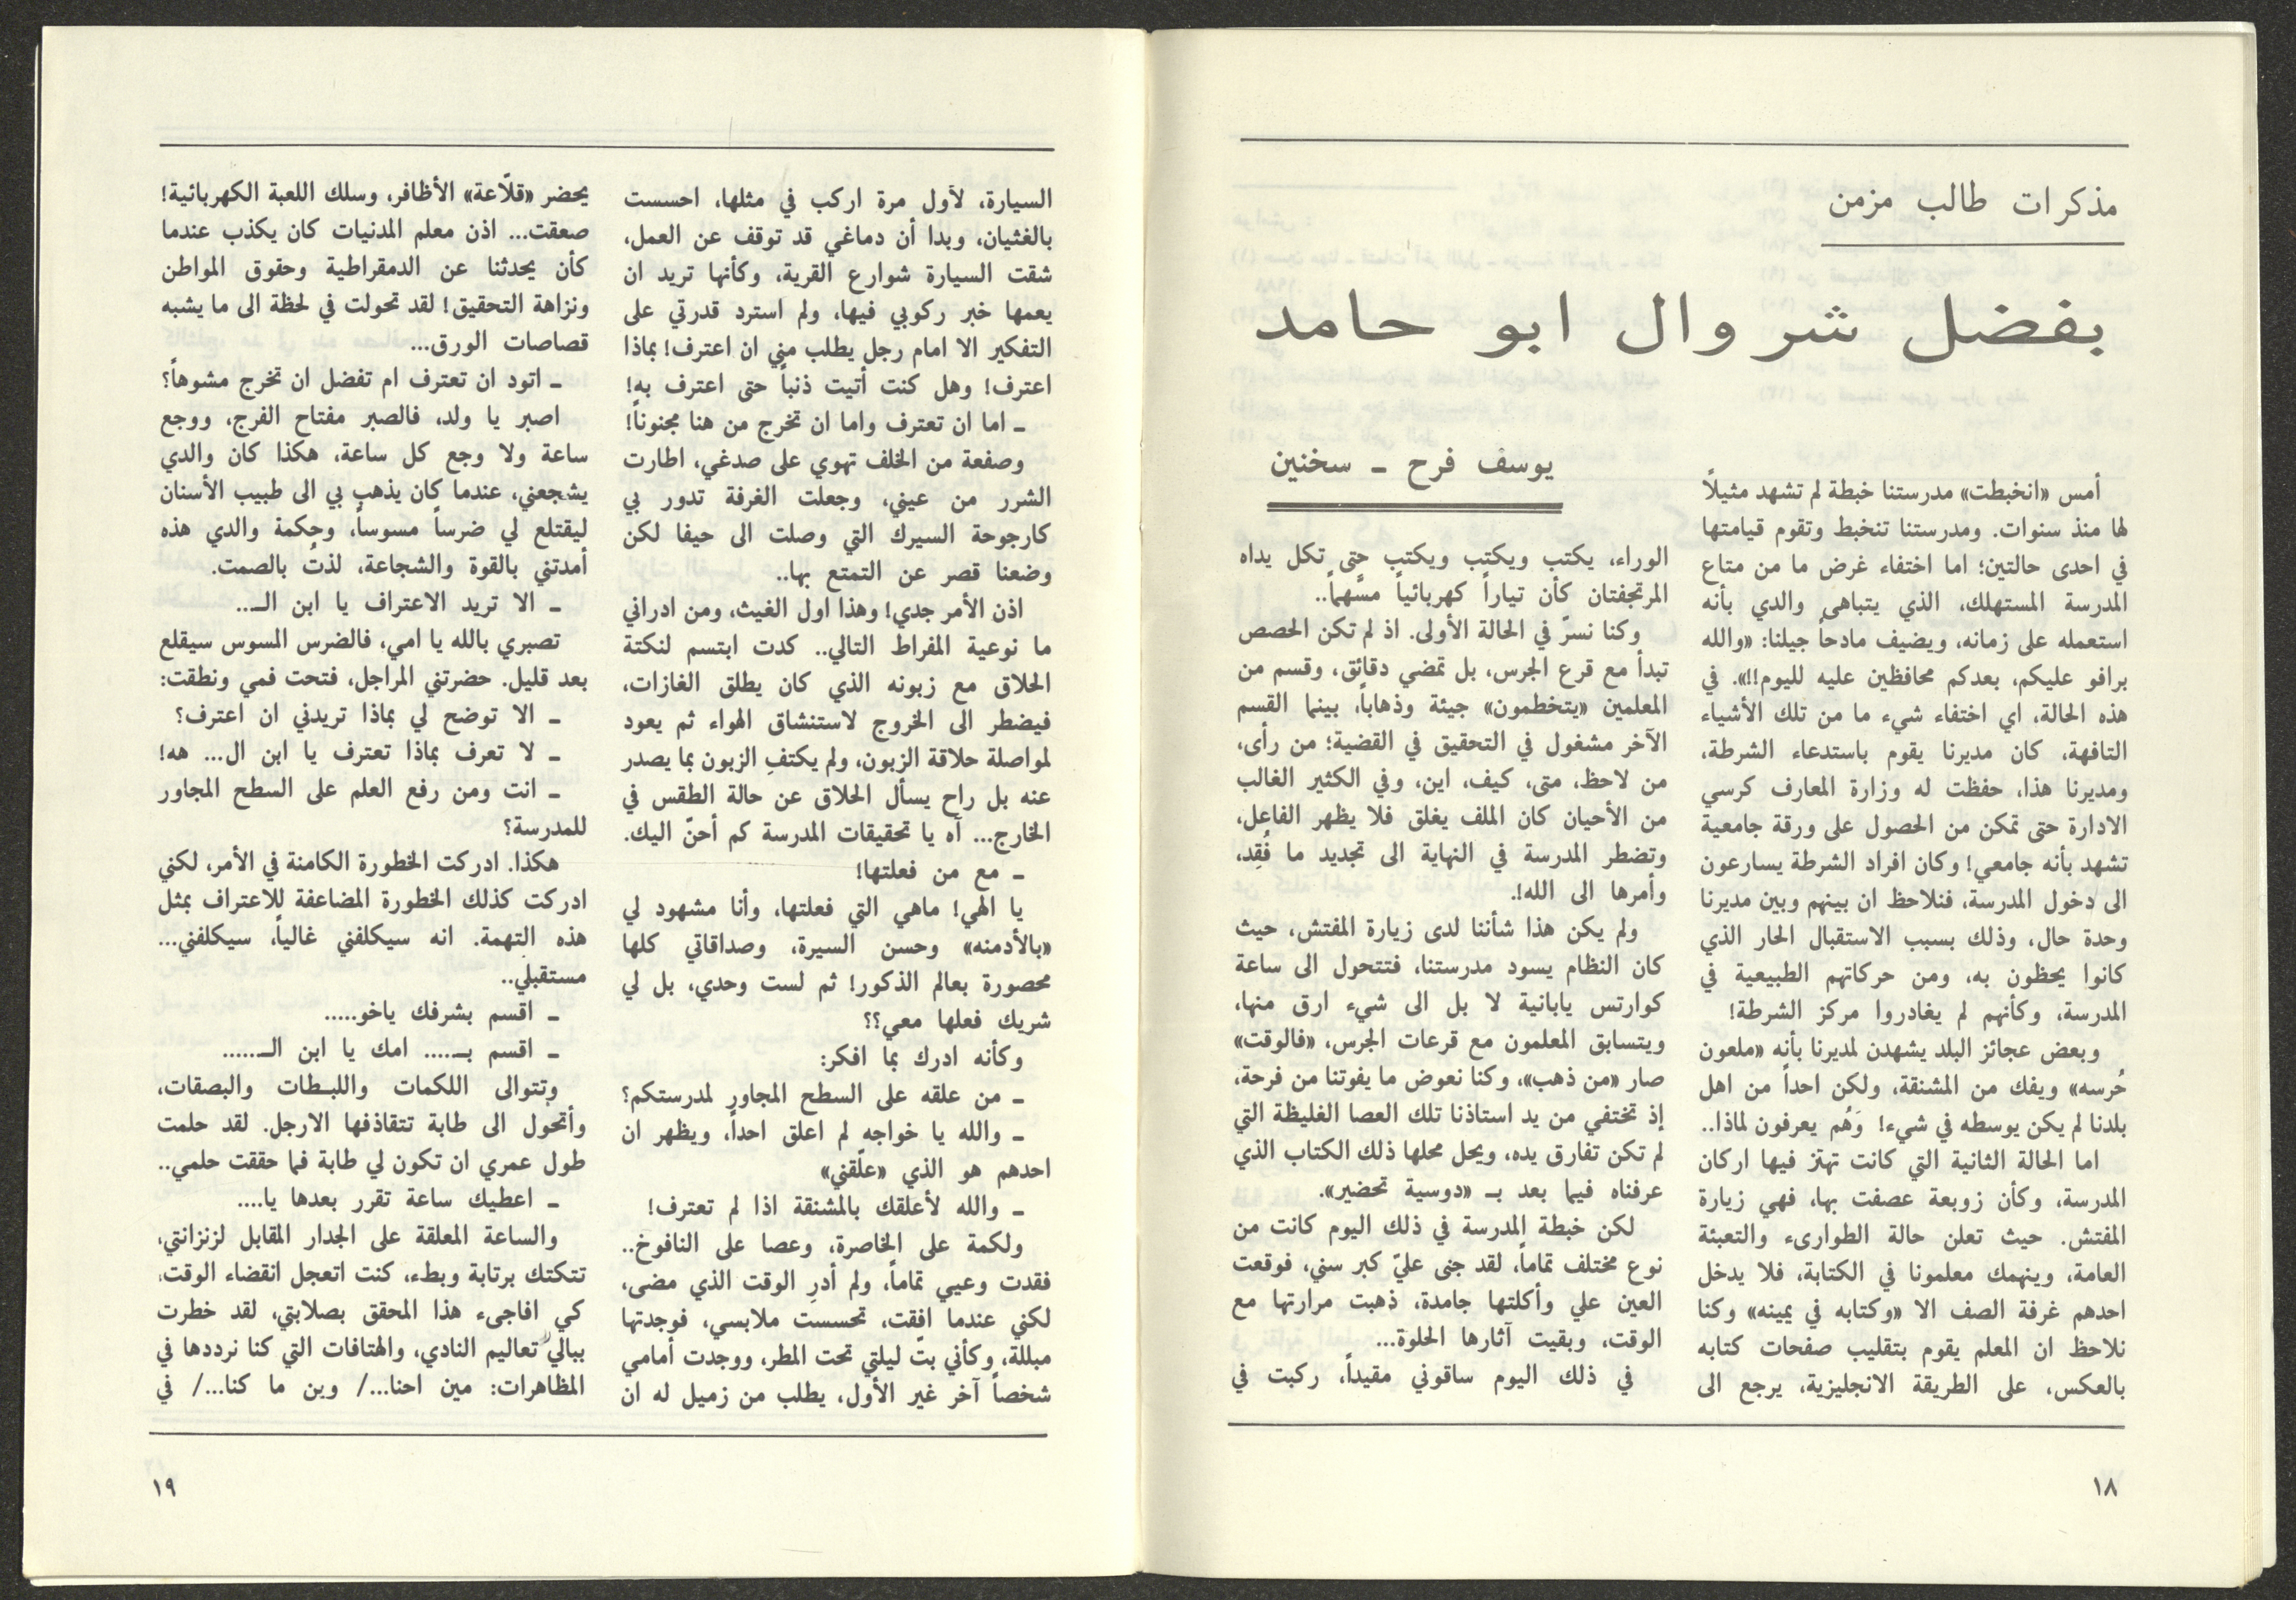 مذكرات طالب مزمن
بفضل شروال ابو حامد
يوسف فرح ـ سخنين
أمس «انخبطت» مدرستنا خبطة لم تشهد مثيلاً
لها منذ سنوات. ومدرستنا تنخبط وتقوم قيامتها
في احدى حالتين؛ اما اختفاء غرض ما من متاع
المدرسة المستهلك، الذي يتباهى والدي بأنه
استعمله على زمانه، ويضيف مادحاً جيلنا: «والله
برافو عليكم، بعدكم محافظين عليه لليوم!!». في
هذه الحالة، اي اختفاء شيء ما من تلك الأشياء
التافهة، كان مديرنا يقوم باستدعاء الشرطة،
ومديرنا هذا، حفظت له وزارة المعارف كرسي
الادارة حتى تمكن من الحصول على ورقة جامعية
تشهد بأنه جامعي! وكان افراد الشرطة يسارعون
الى دخول المدرسة، فنلاحظ ان بينهم وبين مديرنا
وحدة حال، وذلك بسبب الاستقبال الحار الذي
كانوا يحظون به، ومن حركاتهم الطبيعية في
المدرسة، وكأنهم لم يغادروا مركز الشرطة!
وبعض عجائز البلد يشهدن لمديرنا بأنه «ملعون
حُرسه» ويفك من المشنقة، ولكن احداً من اهل
بلدنا لم يكن يوسطه في شيء! وَهُم يعرفون لماذا..
اما الحالة الثانية التي كانت تهتز فيها اركان
المدرسة، وكأن زوبعة عصفت بها، فهي زيارة
المفتش. حيث تعلن حالة الطوارىء والتعبئة
العامة، وينهمك معلمونا في الكتابة، فلا يدخل
احدهم غرفة الصف الا «وكتابه في يمينه» وكنا
نلاحظ ان المعلم يقوم بتقليب صفحات كتابه
بالعكس، على الطريقة الانجليزية، يرجع الى
الوراء، يكتب ويكتب ويكتب حتى تكل يداه
المرتجفتان كأن تياراً كهربائياً مسَّهما..
وكنا نسرّ في الحالة الأولى. اذ لم تكن الحصص
تبدأ مع قرع الجرس، بل تمضي دقائق، وقسم من
المعلمين «يتخطمون» جيئة وذهاباً، بينما القسم
الآخر مشغول في التحقيق في القضية؛ من رأى،
من لاحظ، متى، كيف، اين، وفي الكثير الغالب
من الأحيان كان الملف يغلق فلا يظهر الفاعل،
وتضطر المدرسة في النهاية الى تجديد ما فُقِد،
وأمرها الى الله!.
ولم يكن هذا شأننا لدى زيارة المفتش، حيث
كان النظام يسود مدرستنا، فتتحول الى ساعة
كوارتس يابانية لا بل الى شيء ارق منها،
ويتسابق المعلمون مع قرعات الجرس، «فالوقت»
صار «من ذهب»، وكنا نعوض ما يفوتنا من فرحة،
إذ تختفي من يد استاذنا تلك العصا الغليظة التي
لم تكن تفارق يده، ويحل محلها ذلك الكتاب الذي
عرفناه فيما بعد بـ «دوسية تحضير».
لكن خبطة المدرسة في ذلك اليوم كانت من
نوع مختلف تماماً، لقد جنى عليّ كبر سني، فوقعت
العين علي وأكلتها جامدة، ذهبت مرارتها مع
الوقت، وبقيت آثارها الحلوة...
في ذلك اليوم ساقوني مقيداً، ركبت في
١٨
السيارة، لأول مرة اركب في مثلها، احسست
بالغثيان، وبدا أن دماغي قد توقف عن العمل،
شقت السيارة شوارع القرية، وكأنها تريد ان
يعمها خبر ركوبي فيها، ولم استرد قدرتي على
التفكير الا امام رجل يطلب مني ان اعترف! بماذا
اعترف! وهل كنت أتيت ذنباً حتى اعترف به!
ـ اما ان تعترف واما ان تخرج من هنا مجنوناً!
وصفعة من الخلف تهوي على صدغي، اطارت
الشرر من عيني، وجعلت الغرفة تدور بي
كارجوحة السيرك التي وصلت الى حيفا لكن
وضعنا قصر عن التمتع بها..
اذن الأمر جدي! وهذا اول الغيث، ومن ادراني
ما نوعية المفراط التالي.. كدت ابتسم لنكتة
الحلاق مع زبونه الذي كان يطلق الغازات،
فيضطر الى الخروج لاستنشاق الهواء ثم يعود
لمواصلة حلاقة الزبون، ولم يكتفِ الزبون بما يصدر
عنه بل راح يسأل الحلاق عن حالة الطقس في
الخارج... آه يا تحقيقات المدرسة كم أحنّ اليك.
ـ مع من فعلتها!
يا الهي! ماهي التي فعلتها، وأنا مشهود لي
«بالأدمنه» وحسن السيرة، وصداقاتي كلها
محصورة بعالم الذكور! ثم لست وحدي، بل لي
شريك فعلها معي؟؟
وكأنه ادرك بما افكر:
ـ من علقه على السطح المجاور لمدرستكم؟
ـ والله يا خواجه لم اعلق احداً، ويظهر ان
احدهم هو الذي «علّقني»
ـ والله لأعلقك بالمشنقة اذا لم تعترف!
ولكمة على الخاصرة، وعصا على النافوخ..
فقدت وعيي تماماً، ولم أدرِ الوقت الذي مضى،
لكني عندما افقت، تحسست ملابسي، فوجدتها
مبللة، وكأني بتّ ليلتي تحت المطر، ووجدت أمامي
شخصاً آخر غير الأول، يطلب من زميل له ان
يحضر «قلّاعة» الأظافر، وسلك اللعبة الكهربائية!
صعقت... اذن معلم المدنيات كان يكذب عندما
كأن يحدثنا عن الدمقراطية وحقوق المواطن
ونزاهة التحقيق! لقد تحولت في لحظة الى ما يشبه
قصاصات الورق...
ـ اتود ان تعترف ام تفضل ان تخرج مشوهاً؟
اصبر يا ولد، فالصبر مفتاح الفرج، ووجع
ساعة ولا وجع كل ساعة، هكذا كان والدي
يشجعني، عندما كان يذهب بي الى طبيب الأسنان
ليقتلع لي ضرساً مسوساً، وحكمة والدي هذه
أمدتني بالقوة والشجاعة، لذتُ بالصمت.
ـ الا تريد الاعتراف يا ابن الـ..
تصبري بالله يا امي، فالضرس المسوس سيقلع
بعد قليل. حضرتني المراجل، فتحت فمي ونطقت:
ـ الا توضح لي بماذا تريدني ان اعترف؟
ـ لا تعرف بماذا تعترف يا ابن ال... هه!
ـ انت ومن رفع العلم على السطح المجاور
للمدرسة؟
هكذا. ادركت الخطورة الكامنة في الأمر، لكني
ادركت كذلك الخطورة المضاعفة للاعتراف بمثل
هذه التهمة. انه سيكلفني غالياً، سيكلفني...
مستقبلي..
ـ اقسم بشرفك ياخو.....
ـ اقسم بـ.... امك يا ابن الـ......
وتتوالى اللكمات واللبطات والبصقات،
وأتحول الى طابة تتقاذفها الارجل. لقد حلمت
طول عمري ان تكون لي طابة فما حققت حلمي..
ـ اعطيك ساعة تقرر بعدها يا....
والساعة المعلقة على الجدار المقابل لزنزانتي،
تتكتك برتابة وبطء، كنت اتعجل انقضاء الوقت،
كي افاجىء هذا المحقق بصلابتي، لقد خطرت
ببالي تعاليم النادي، والهتافات التي كنا نرددها في
المظاهرات: مين احنا.../ وين ما كنا.../ في
١٩